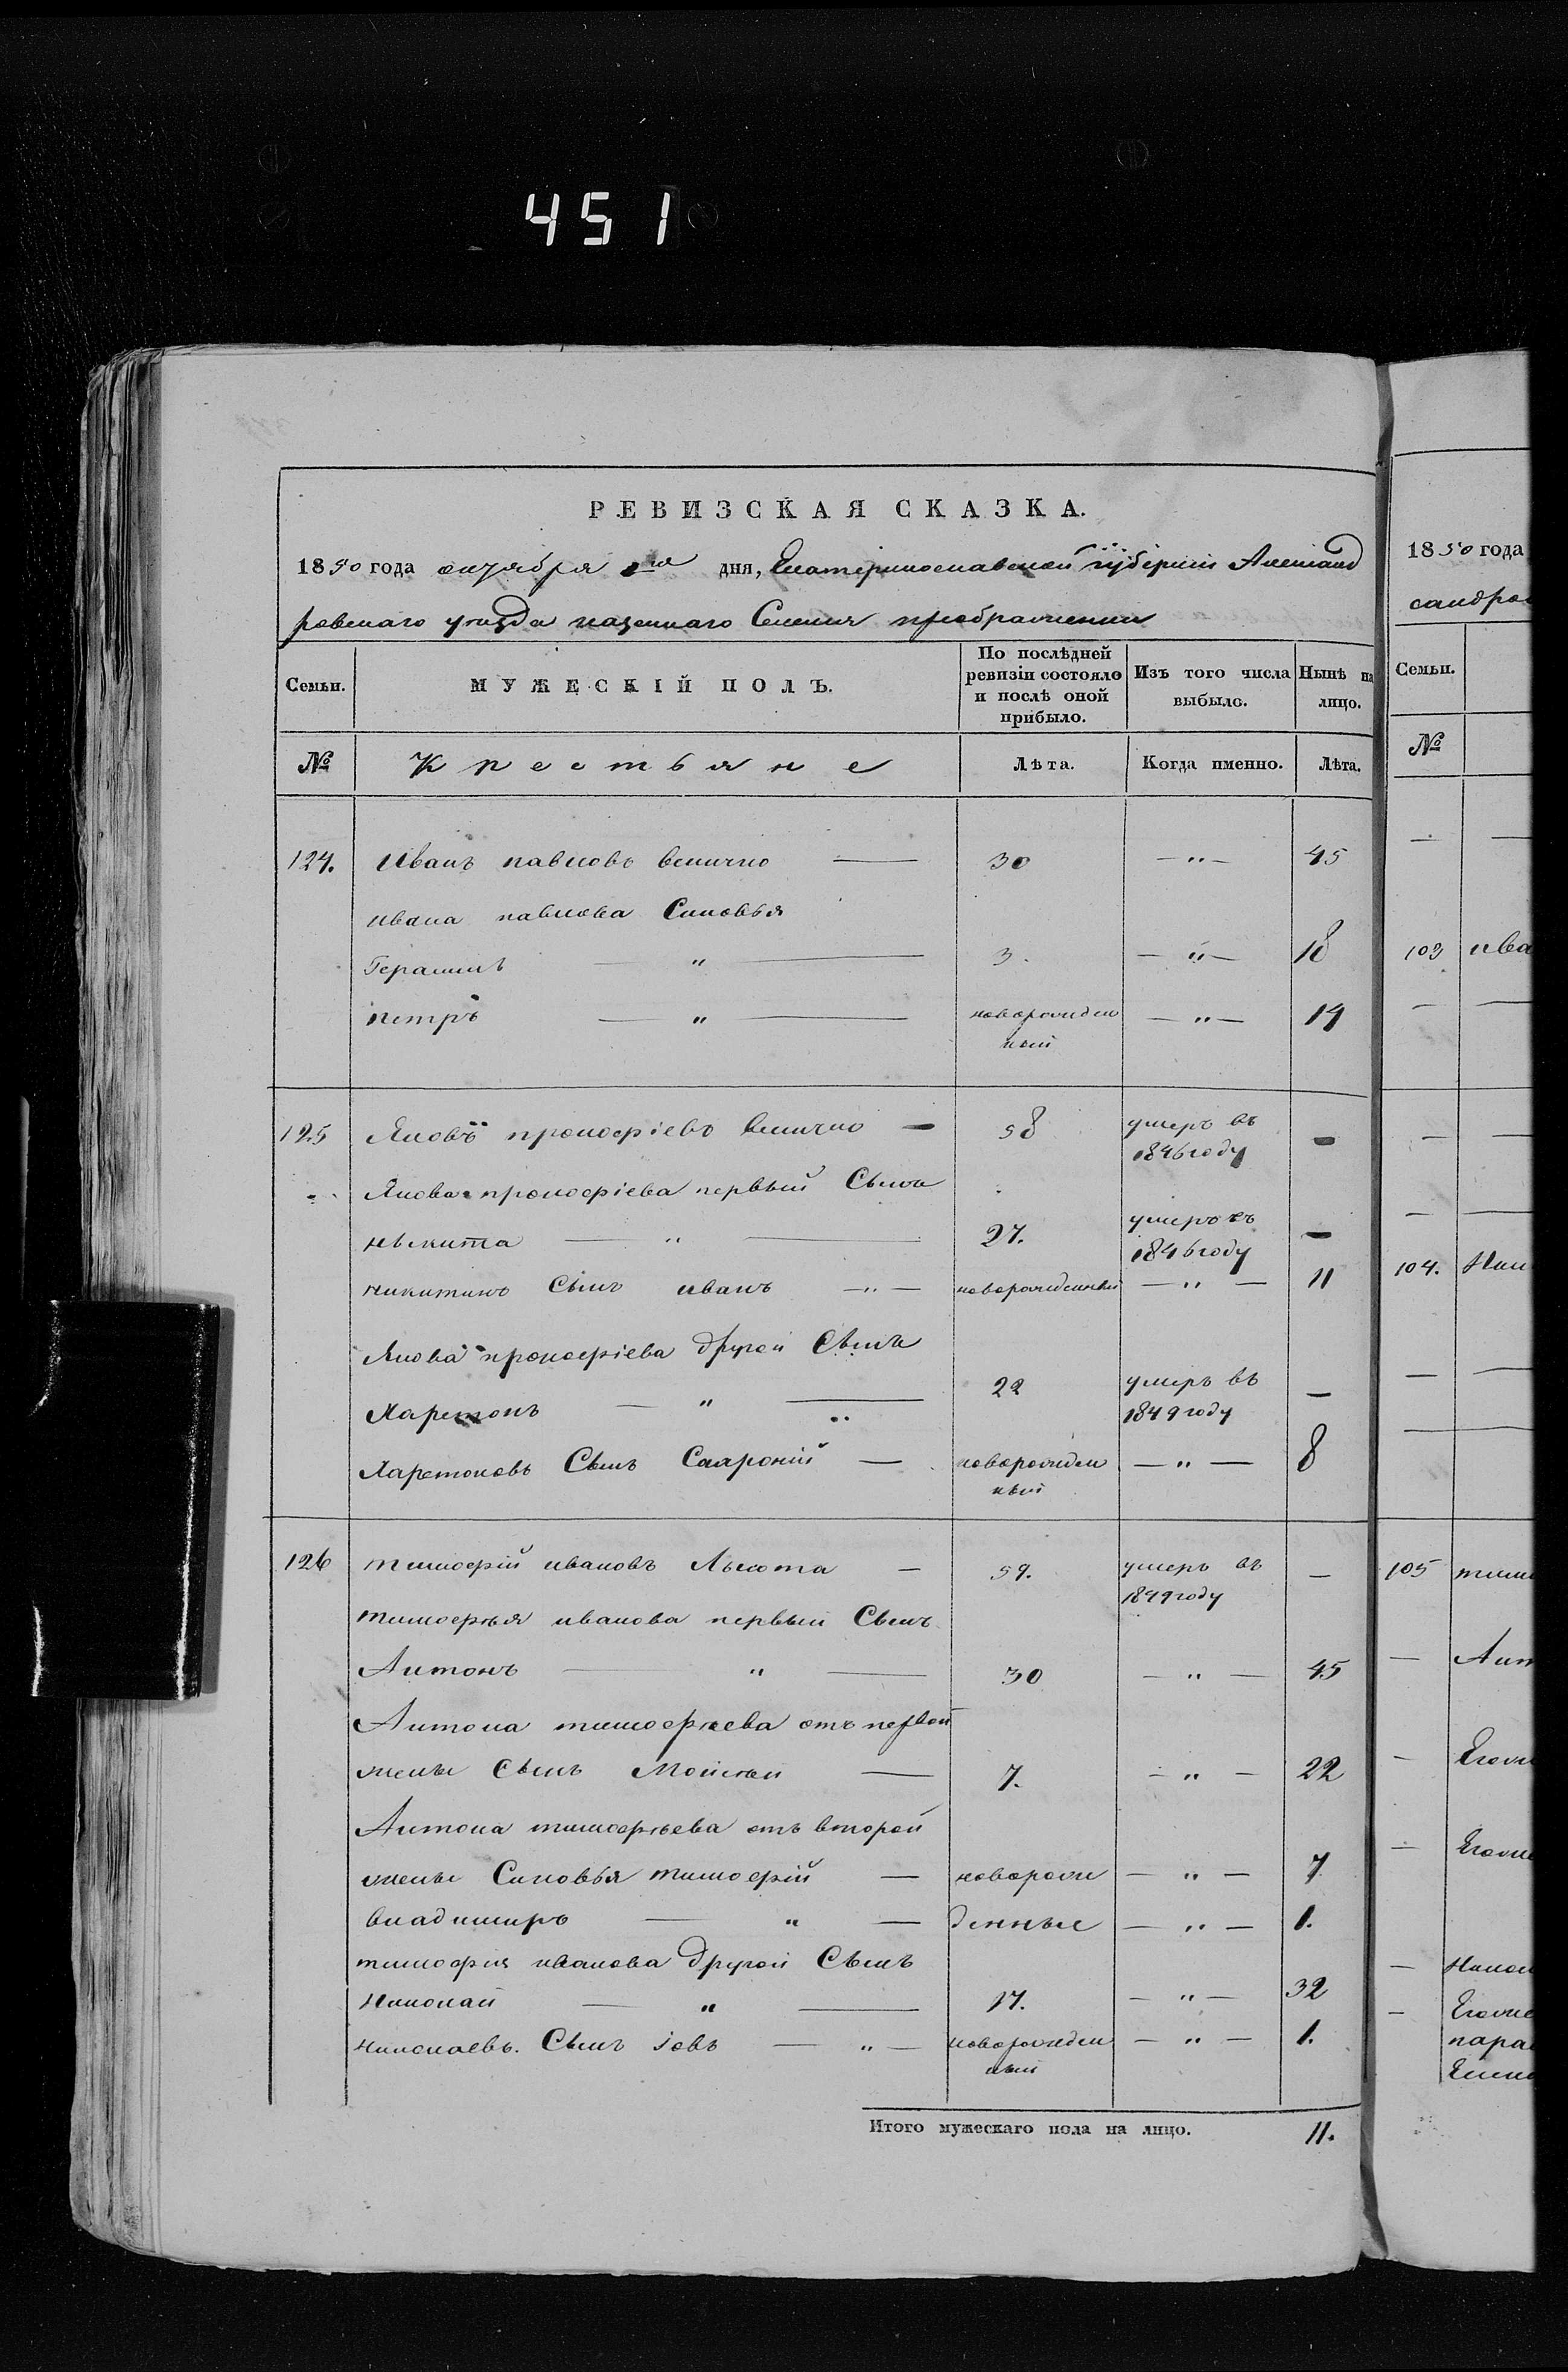 451
РЕВИЗСКАЯ СКАЗКА.
1850 года октября дня, Екатеринославской губерніи Александ
ровскаго уезда казеннаго Селения преображенки
Семьи. МУЖЕСКІЙ ПОЛЪ. По послѣдней ревизіи состояло и послѣ оной прибыло. Изъ того числа выбыло. Нынѣ на лицо.
№ Крестьяне Лѣта. Когда именно. Лѣта.
124. Иванъ павловъ величко — 30 — " — 45
ивана павлова Сыновья
Герасимъ — " — 3. — " — 18
петръ — " — новорожден ный — " — 14
125 Яковъ прокофіевъ величко — 58 умеръ въ 1846 году —
Якова прокофіева первый Сынъ
никита — " — 27. умеръ въ 1846 году —
никитинъ Сынъ иванъ — " — новорожденный — " — 11
Якова прокофіева другой Сынъ
Харетонъ — " — 22 умеръ въ 1849 году —
Харетоновъ Сынъ Сафроній — новорожден ный — " — 8
126 тимофій ивановъ — 59. умеръ въ 1849 году —
тимофѣя иванова первый Сынъ
Антонъ — " — 30 — " — 45
Антона тимофѣева отъ первой
жены Сынъ Мойсѣй — 7. — " — 22
Антона тимофѣева отъ второй
жены Сыновья тимофій — новорож — " — 7
владимиръ — " — денные — " — 1.
тимофия иванова другой Сынъ
Николай — " — 17. — " — 32
николаевъ. Сынъ іовъ — " — новорожден ный — " — 1.
Итого мужескаго пола на лицо. 11.
1850 года
сандров
Семьи.
№
103 ива
104. Ник
105 тим
Ант
Егож
Егож
Никол
Егож
пара